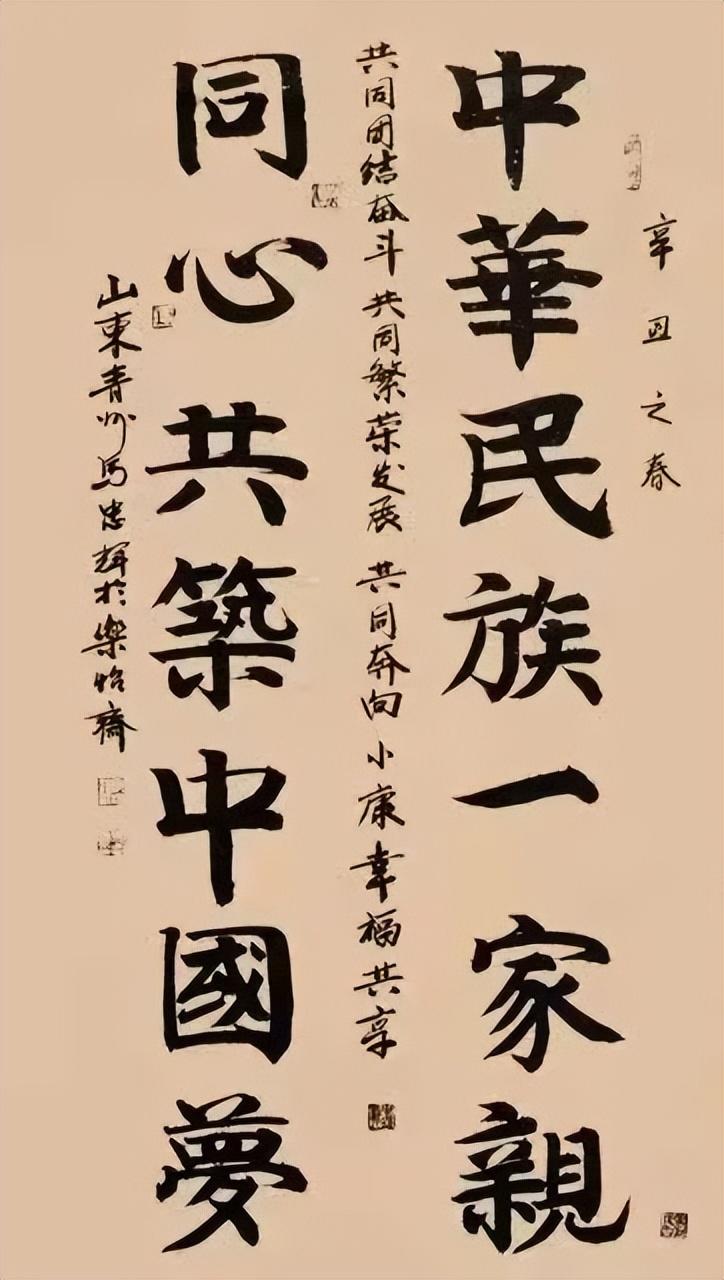 辛丑之春
中華民族一家親
共同团结奋斗共同繁荣发展共同奔向小康幸福共享
同心共築中國夢
山東青州馬忠輝於樂怡齋